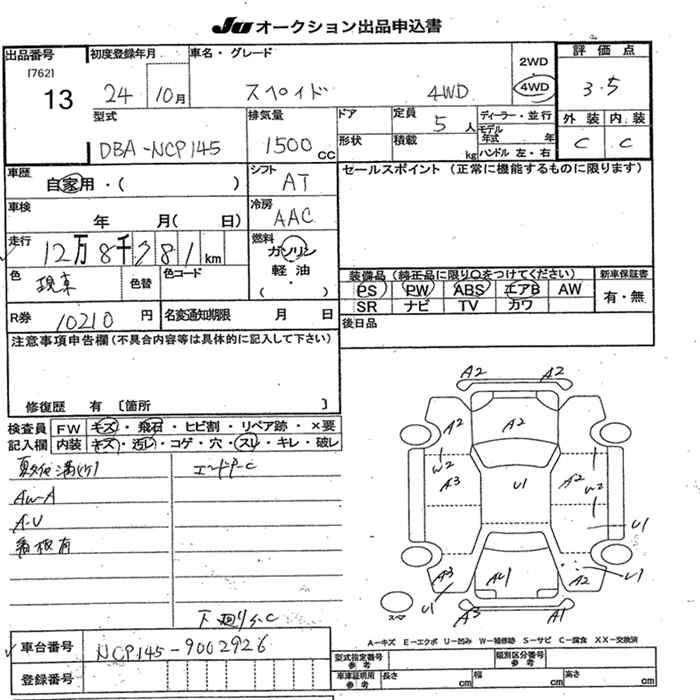 JU オークション出品申込書
出品番号 初度登録年月 車名・グレード 2WD 評価点
[762] 13 24 10月 スペイド 4WD 4WD 3.5
型式 排気量 ドア 定員 5人 ディーラー・並行 外装 内装
DBA-NCP145 1500cc 形状 積載 kg モデル年式 年 ハンドル 左・右 C C
車歴 自家用・( ) シフト AT セールスポイント (正常に機能するものに限ります)
車検 年 月( 日) 冷房 AAC
走行 12万8千781km 燃料 ガソリン
色 色替 色コード 軽油 装備品 (純正品に限り○をつけてください) 新車保証書
( ・ ) PS PW ABS エアB AW 有・無
R券 10210円 名変通知期限 月 日 SR ナビ TV カワ
注意事項申告欄(不具合内容等は具体的に記入して下さい) 後日品
修復歴 有 [箇所 ]
検査員 FW キズ・飛石・ヒビ割・リペア跡・×要
記入欄 内装 キズ・汚レ・コゲ・穴・スレ・キレ・破レ
エンドP-C
AW-A
A-U
看板有
下廻りS-C
A2 A2
A2 A2
W2
A3 U1 A2 W2
U1
A3 U1 AU1 A2 U1
スペア A3 A1
A-キズ E-エクボ U-凹み W-補修跡 S-サビ C-腐食 XX-交換済
車台番号 NCP145-9002926
型式指定番号 参考 類別区分番号 参考
登録番号 車庫証明用 参考 長さ cm 幅 cm 高さ cm